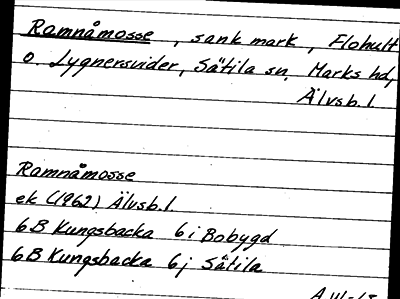 Ramnåmosse, sank mark, Flohult
o. Lygnersvider, Sätila sn, Marks hd,
Älvsb. l
Ramnåmosse
ek (1962) Älvsb. l.
6B Kungsbacka 6i Bobygd
6B Kungsbacka 6j Sätila